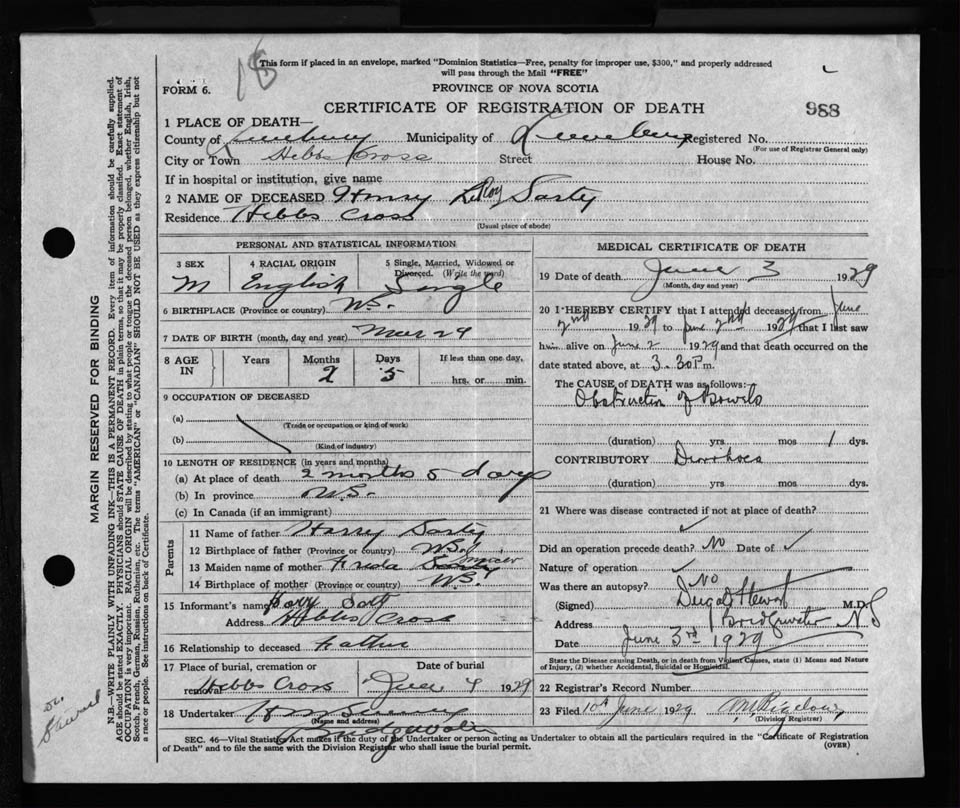 This form if placed in an envelope, marked "Dominion Statistics—Free, penalty for improper use, $300," and properly addressed
will pass through the Mail "FREE"
FORM 6.
PROVINCE OF NOVA SCOTIA
CERTIFICATE OF REGISTRATION OF DEATH
988
1 PLACE OF DEATH—
County of Lunenburg Municipality of Lunenburg Registered No.
(For use of Registrar General only)
City or Town Hebbs Cross Street House No.
If in hospital or institution, give name
2 NAME OF DECEASED Henry LeRoy Sarty
Residence Hebbs Cross
(Usual place of abode)
PERSONAL AND STATISTICAL INFORMATION
3 SEX 4 RACIAL ORIGIN 5 Single, Married, Widowed or Divorced. (Write the word)
M English Single
6 BIRTHPLACE (Province or country) N.S.
7 DATE OF BIRTH (month, day and year) Mar 29
8 AGE IN Years Months Days If less than one day,
2 5 hrs. or min.
9 OCCUPATION OF DECEASED
(a)
(Trade or occupation or kind of work)
(b)
(Kind of industry)
10 LENGTH OF RESIDENCE (in years and months)
(a) At place of death 2 months 5 days
(b) In province N.S.
(c) In Canada (if an immigrant)
Parents
11 Name of father Harry Sarty
12 Birthplace of father (Province or country) N.S.
13 Maiden name of mother Freda
14 Birthplace of mother (Province or country) N.S.
15 Informant's name Harry Sarty
Address Hebbs Cross
16 Relationship to deceased Father
17 Place of burial, cremation or removal Date of burial
Hebbs Cross June 4 1929
18 Undertaker
(Name and address)
Bridgewater
MEDICAL CERTIFICATE OF DEATH
19 Date of death June 3 1929
(Month, day and year)
20 I HEREBY CERTIFY that I attended deceased from June
2nd 1929 to June 2nd 1929 that I last saw
him alive on June 2 1929 and that death occurred on the
date stated above, at 3.30 P.m.
The CAUSE of DEATH was as follows:
Obstruction of Bowels
(duration) yrs mos 1 dys.
CONTRIBUTORY Diarrhoea
(duration) yrs. mos. dys.
21 Where was disease contracted if not at place of death?
Did an operation precede death? No Date of
Nature of operation
Was there an autopsy? No
(Signed) Dugal Stewart M.D.
Address Bridgewater N.S
Date June 3rd 1929
State the Disease causing Death, or in death from Violent Causes, state (1) Means and Nature
of Injury, (2) whether Accidental, Suicidal or Homicidal.
22 Registrar's Record Number
23 Filed 10th June 1929
(Division Registrar)
SEC. 46—Vital Statistics Act makes it the duty of the Undertaker or person acting as Undertaker to obtain all the particulars required in the "Certificate of Registration
of Death" and to file the same with the Division Registrar who shall issue the burial permit.
(OVER)
MARGIN RESERVED FOR BINDING
N.B—WRITE PLAINLY WITH UNFADING INK—THIS IS A PERMANENT RECORD. Every item of information should be carefully supplied.
AGE should be stated EXACTLY. PHYSICIANS should STATE CAUSE OF DEATH in plain terms, so that it may be properly classified. Exact statement of
OCCUPATION is very important. RACIAL ORIGIN will be described by stating to what people or tongue the deceased person belonged, whether English, Irish,
Scotch, French, German, Russian, Ruthenian, etc. The terms "AMERICAN" or "CANADIAN" SHOULD NOT BE USED as they express citizenship but not
a race or people. See instructions on back of Certificate.
Dr. Stewart